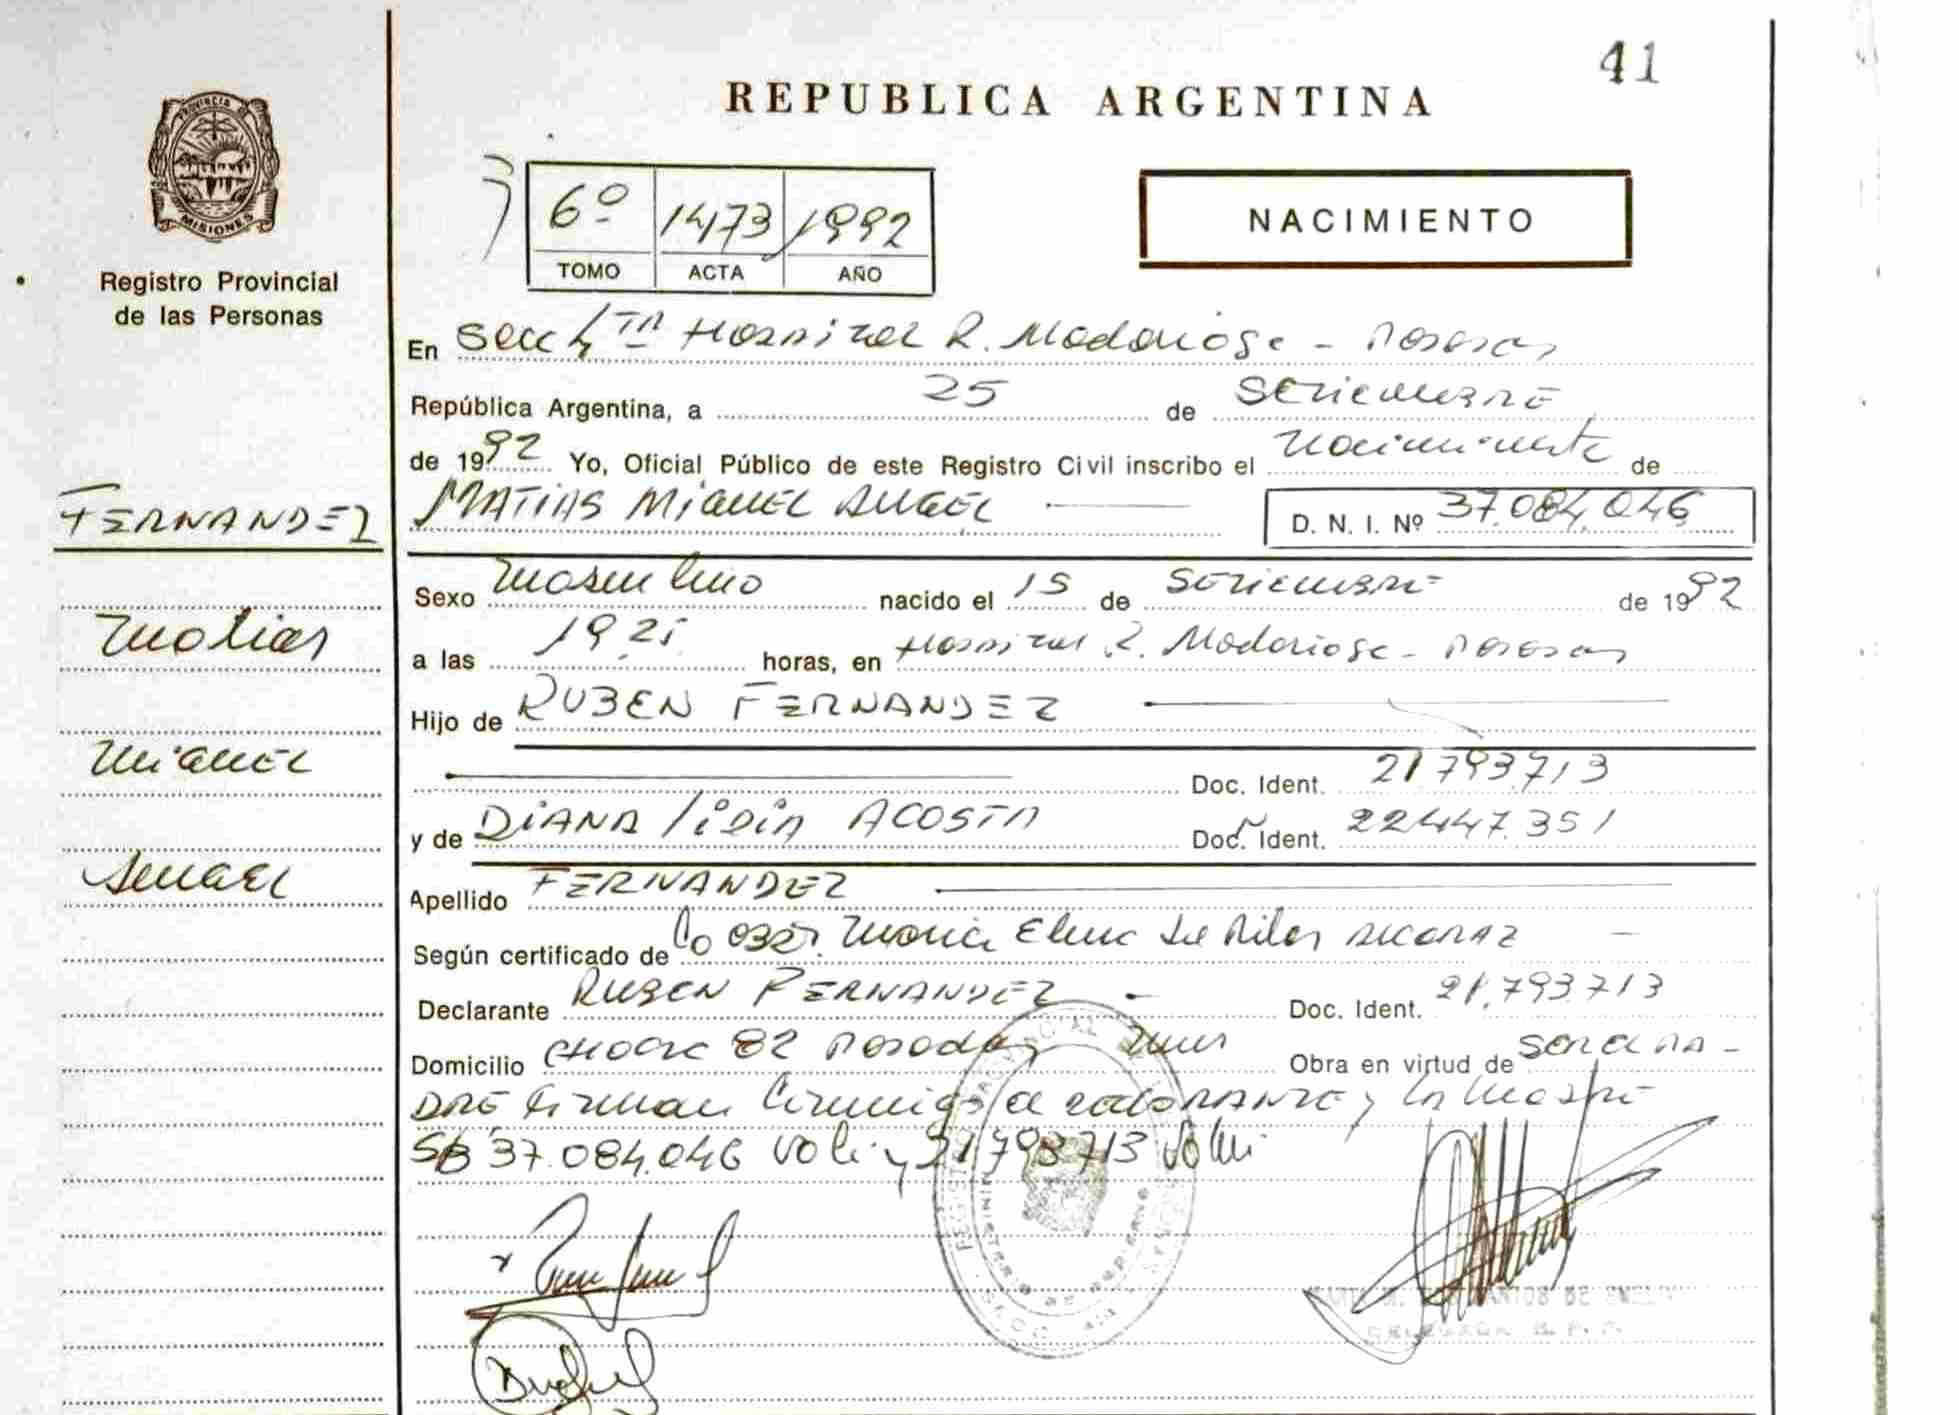 41
REPUBLICA ARGENTINA
PROVINCIA DE
MISIONES
Registro Provincial
de las Personas
6º 1473 1992
TOMO ACTA AÑO
NACIMIENTO
En Secc 4TA Hospital R. Madariaga - Posadas
República Argentina, a 25 de SETIEMBRE
de 1992 Yo, Oficial Público de este Registro Civil inscribo el Nacimiento de
FERNANDEZ
MATIAS MIGUEL ANGEL D. N. I. Nº 37.084.046
Sexo Masculino nacido el 15 de SETIEMBRE de 1992
Matias
a las 19,25 horas, en Hospital R. Madariaga - Posadas
Hijo de RUBEN FERNANDEZ
MIGUEL
Doc. Ident. 21793713
y de DIANA LIDIA ACOSTA Doc. Ident. 22447.351
ANGEL
Apellido FERNANDEZ
Según certificado de Maria Elena del Pilar ALCARAZ
Declarante RUBEN FERNANDEZ Doc. Ident. 21.793.713
Domicilio 82 Posadas Mnes Obra en virtud de ser el PA-
DRE Firman Conmigo el declarante y la Madre
37.084.046 vale y 21793713 vale